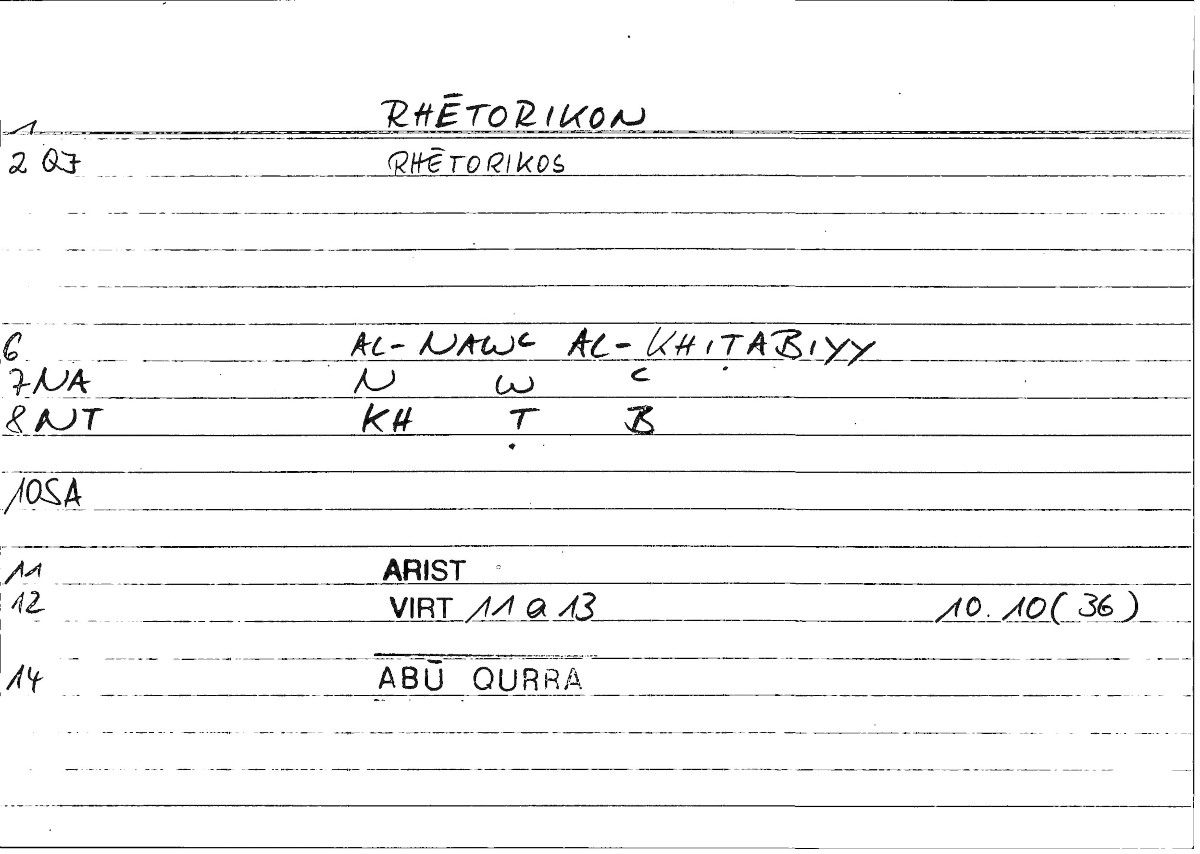 1 RHĒTORIKON
2 QJ RHĒTORIKOS
6 AL-NAWC AL-KHIṬABIYY
7 NA N W C
8 NT KH Ṭ B
10 SA
11 ARIST
12 VIRT 11 a 13 10.10(36)
14 ABŪ QURRA